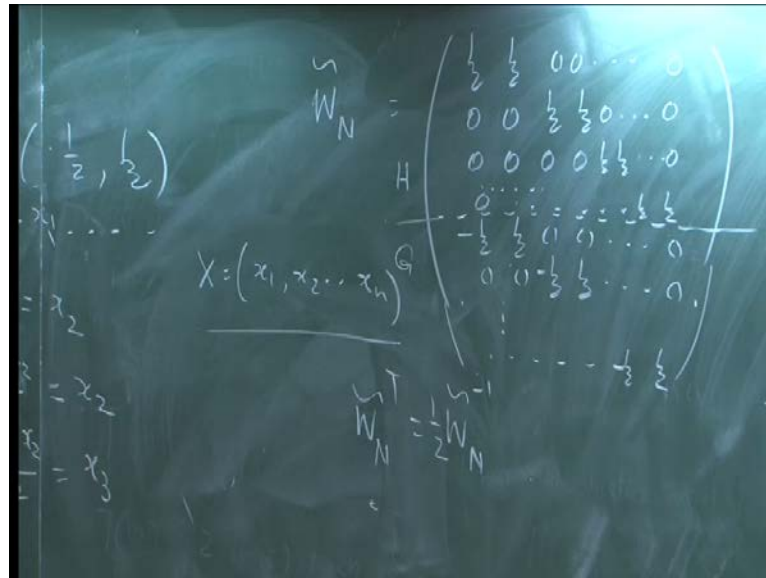 ( 1/2 , 1/2 )
x₁ . . . .
= x₂
= x₂
x₂ = x₃
X = (x₁, x₂ ... xₙ)
W̃_N =
H
G
1/2 1/2 0 0 ... 0
0 0 1/2 1/2 0 ... 0
0 0 0 0 1/2 1/2 ... 0
0 ....... 1/2 1/2
-1/2 1/2 0 0 ... 0
0 0 -1/2 1/2 ... 0
. ..... -1/2 1/2
W̃_N^T = 1/2 W̃_N^-1